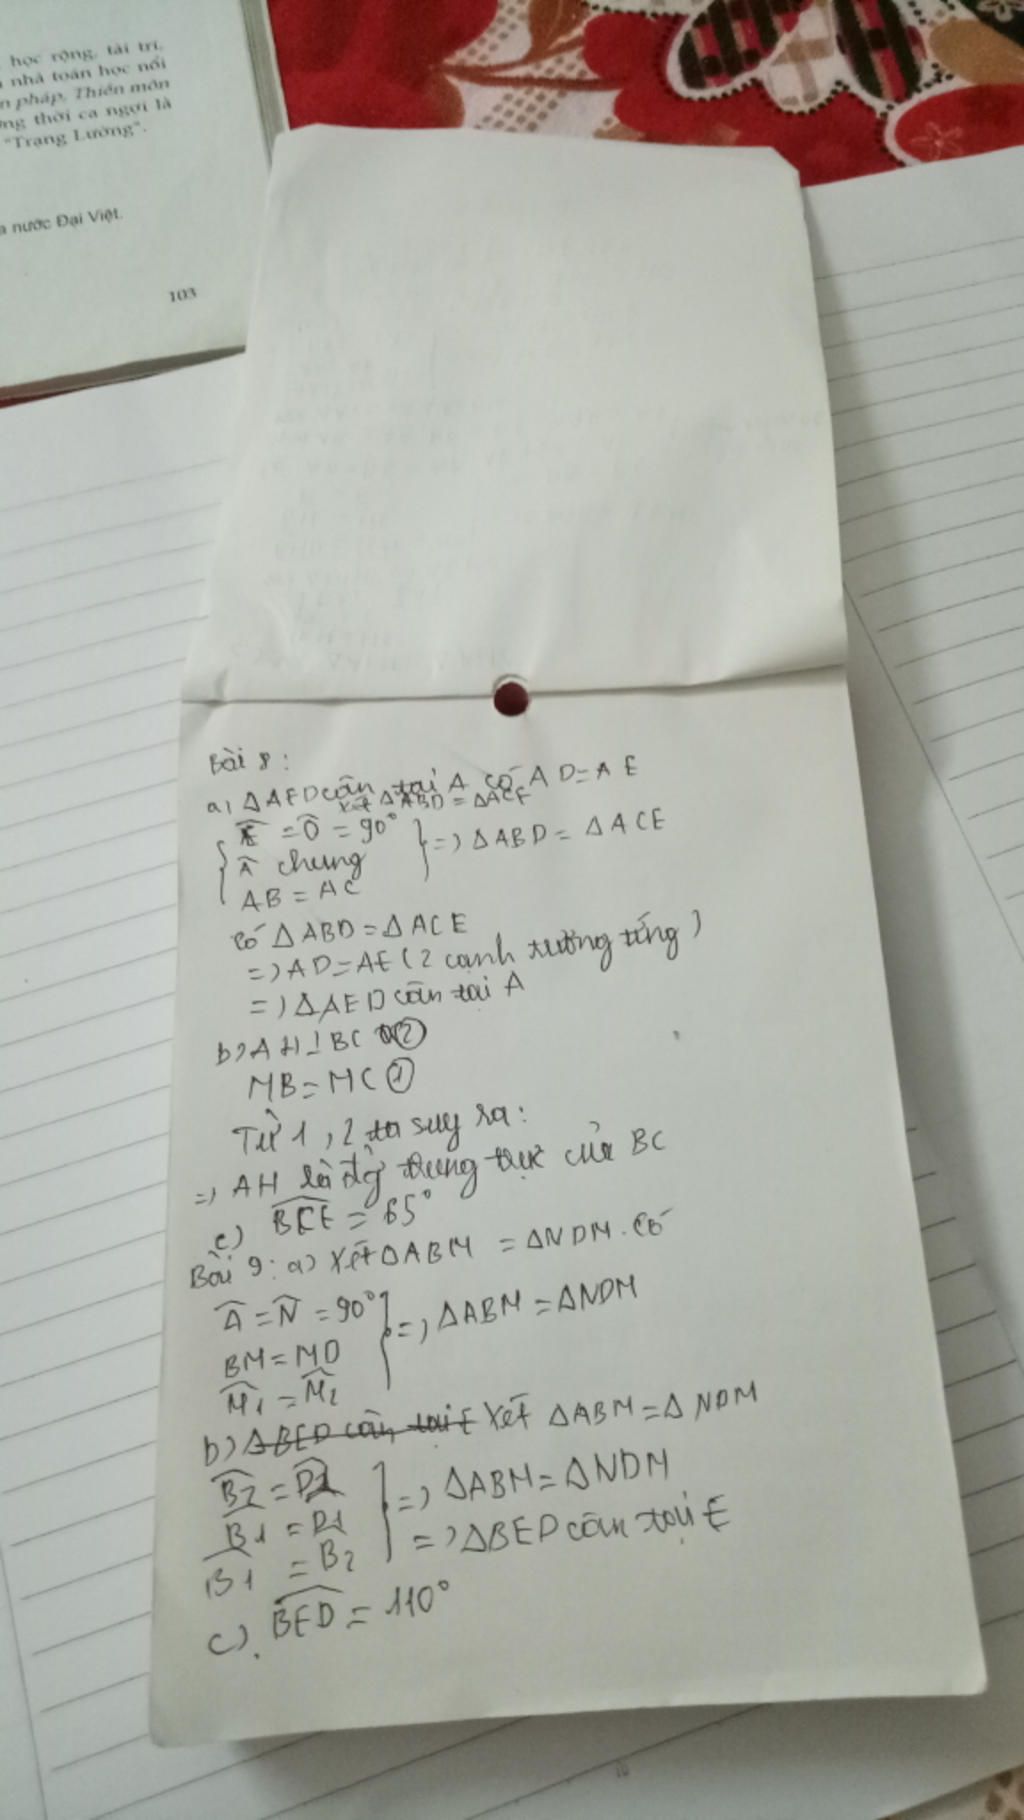 học rộng, tài trí,
nhà toán học nổi
n pháp, Thiền môn
ng thời ca ngợi là
"Trạng Lường".
a nước Đại Việt.
103
Bài 8:
a, ΔAED cân tại A có AD=AE
xét ΔABD = ΔACE
Ê = D̂ = 90°
Â chung
AB = AC
=) ΔABD = ΔACE
có ΔABD = ΔACE
=) AD=AE (2 cạnh tương ứng)
=) ΔAED cân tại A
b) AH⊥BC ②
MB=MC ①
Từ 1, 2 ta suy ra:
=) AH là đg trung trực của BC
c) B̂CE = 65°
Bài 9: a) Xét ΔABM = ΔNDM. Có
Â = N̂ = 90°
BM = MD
M̂1 = M̂2
=) ΔABM = ΔNDM
b) ΔBED cân tại E Xét ΔABM = ΔNDM
B̂2 = D̂2
B̂1 = D1
B̂1 = B2
=) ΔABM = ΔNDM
=) ΔBED cân tại E
c). B̂ED = 110°